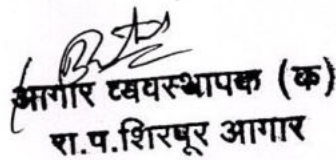 आगार व्यवस्थापक (क)
रा.प.शिरपूर आगार